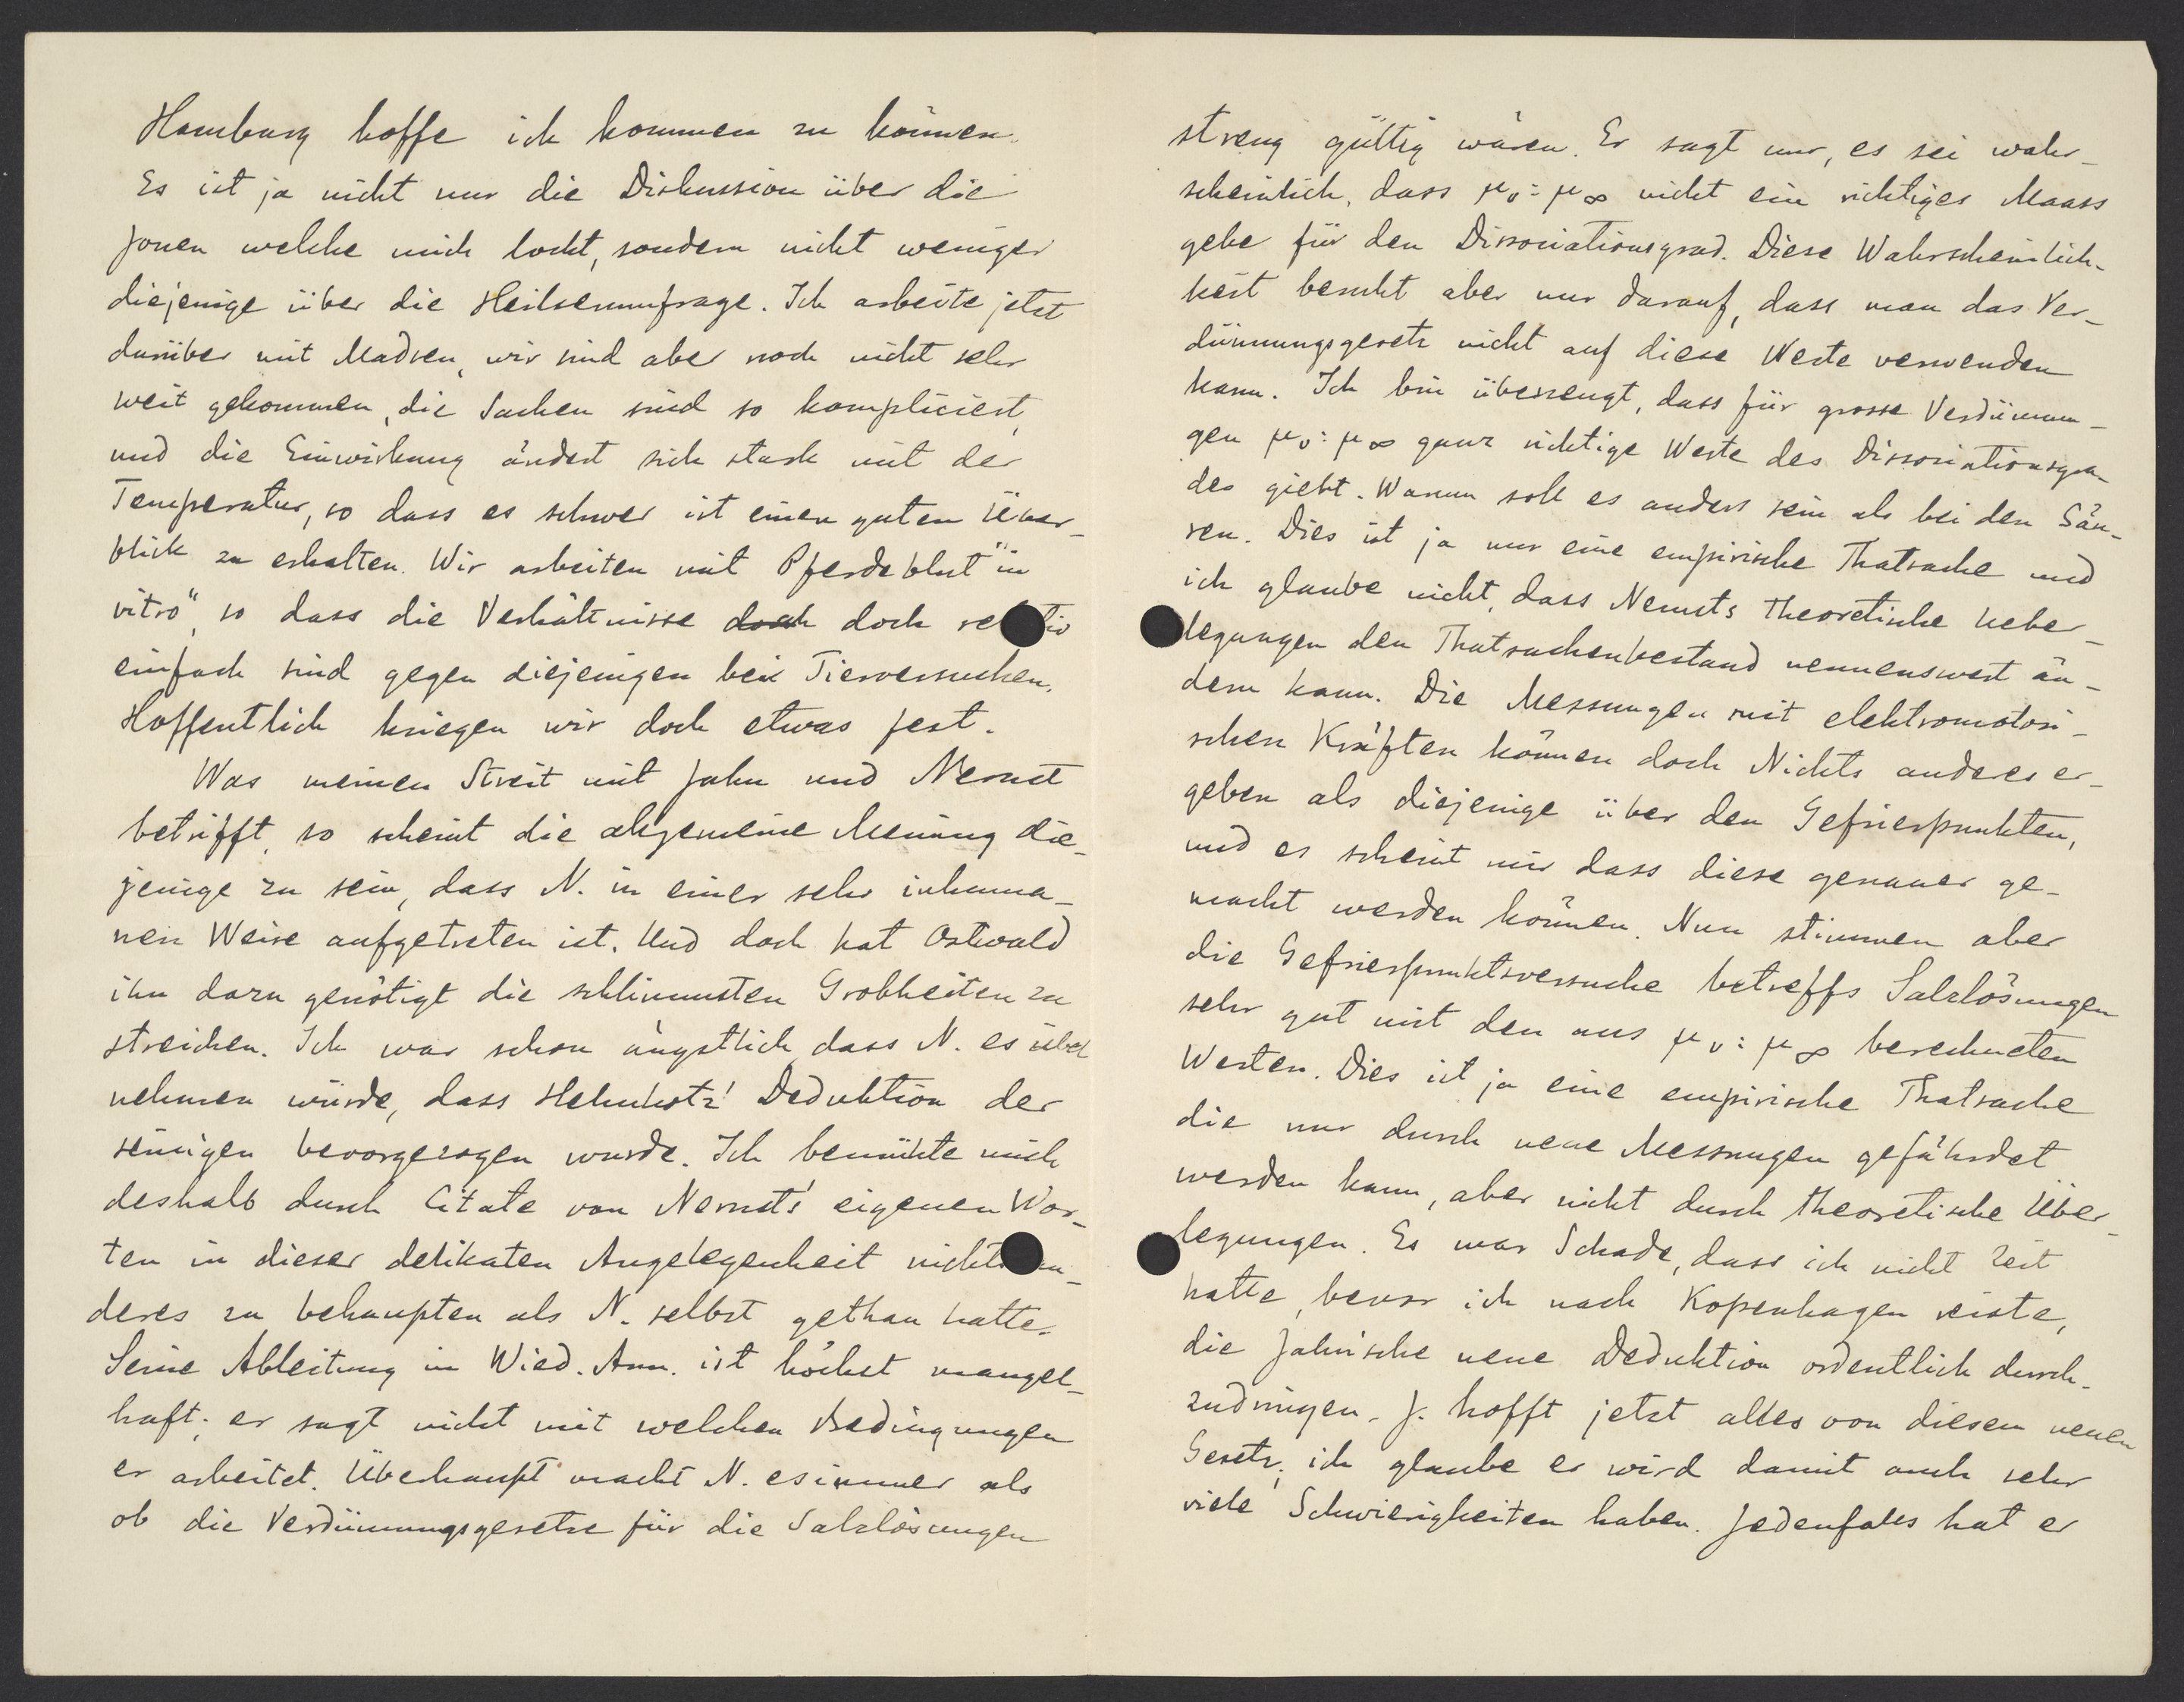 Hamburg hoffe ich kommen zu können.
Es ist ja nicht nur die Diskussion über die
Jonen welche mich lockt, sondern nicht weniger
diejenige über die Heilserumfrage. Ich arbeite jetzt
darüber mit Madsen, wir sind aber noch nicht sehr
weit gekommen, die Sachen sind so kompliciert,
und die Einwirkung ändert sich stark mit der
Temperatur, so dass es schwer ist einen guten Über-
blick zu erhalten. Wir arbeiten mit Pferdeblut "in
vitro", so dass die Verhältnisse doch doch re tiv
einfach sind gegen diejenigen bei Tierversuchen.
Hoffentlich kriegen wir doch etwas fest.
Was meinen Streit mit Jahn und Nernst
betrifft, so scheint die allgemeine Meinung die-
jenige zu sein, dass N. in einer sehr inhuma-
nen Weise aufgetreten ist. Und doch hat Ostwald
ihn dazu genötigt die schlimmsten Grobheiten zu
streichen. Ich war schon ängstlich dass N. es übel
nehmen würde, dass Helmholtz' Deduktion der
seinigen bevorgezogen wurde. Ich bemühte mich
deshalb durch Citate von Nernsts' eigenen Wor-
ten in dieser delikaten Angelegenheit nichts an-
deres zu behaupten als N. selbst gethan hatte.
Seine Ableitung in Wied. Ann. ist höchst mangel-
haft; er sagt nicht mit welchen Bedingungen
er arbeitet. Überhaupt macht N. es immer als
ob die Verdünnungsgesetze für die Salzlösungen
streng gültig wären. Er sagt nur, es sei wahr-
scheinlich, dass μv : μ∞ nicht ein richtiges Maass
gebe für den Dissociationsgrad. Diese Wahrscheinlich-
keit beruht aber nur darauf, dass man das Ver-
dünnungsgesetz nicht auf diese Werte verwenden
kann. Ich bin überzeugt, dass für grosse Verdünnun-
gen μv : μ∞ ganz richtige Werte des Dissociationsgra-
des giebt. Warum soll es anders sein als bei den Säu-
ren. Dies ist ja nur eine empirische Thatsache und
ich glaube nicht, dass Nernsts theoretische Ueber-
legungen den Thatsachenbestand nennenswert än-
dern kann. Die Messungen mit elektromotori-
schen Kräften können doch Nichts anderes er-
geben als diejenige über den Gefrierpunkten,
und es scheint mir dass diese genauer ge-
macht werden können. Nun stimmen aber
die Gefrierpunktsversuche betreffs Salzlösungen
sehr gut mit den aus μv : μ∞ berechneten
Werten. Dies ist ja eine empirische Thatsache
die nur durch neue Messungen gefährdet
werden kann, aber nicht durch theoretische Über-
legungen. Es war Schade, dass ich nicht Zeit
hatte, bevor ich nach Kopenhagen reiste,
die Jahn'sche neue Deduktion ordentlich durch-
zudringen. J. hofft jetzt alles von diesem neuen
Gesetz; ich glaube er wird damit auch sehr
viele Schwierigkeiten haben. Jedenfalls hat er